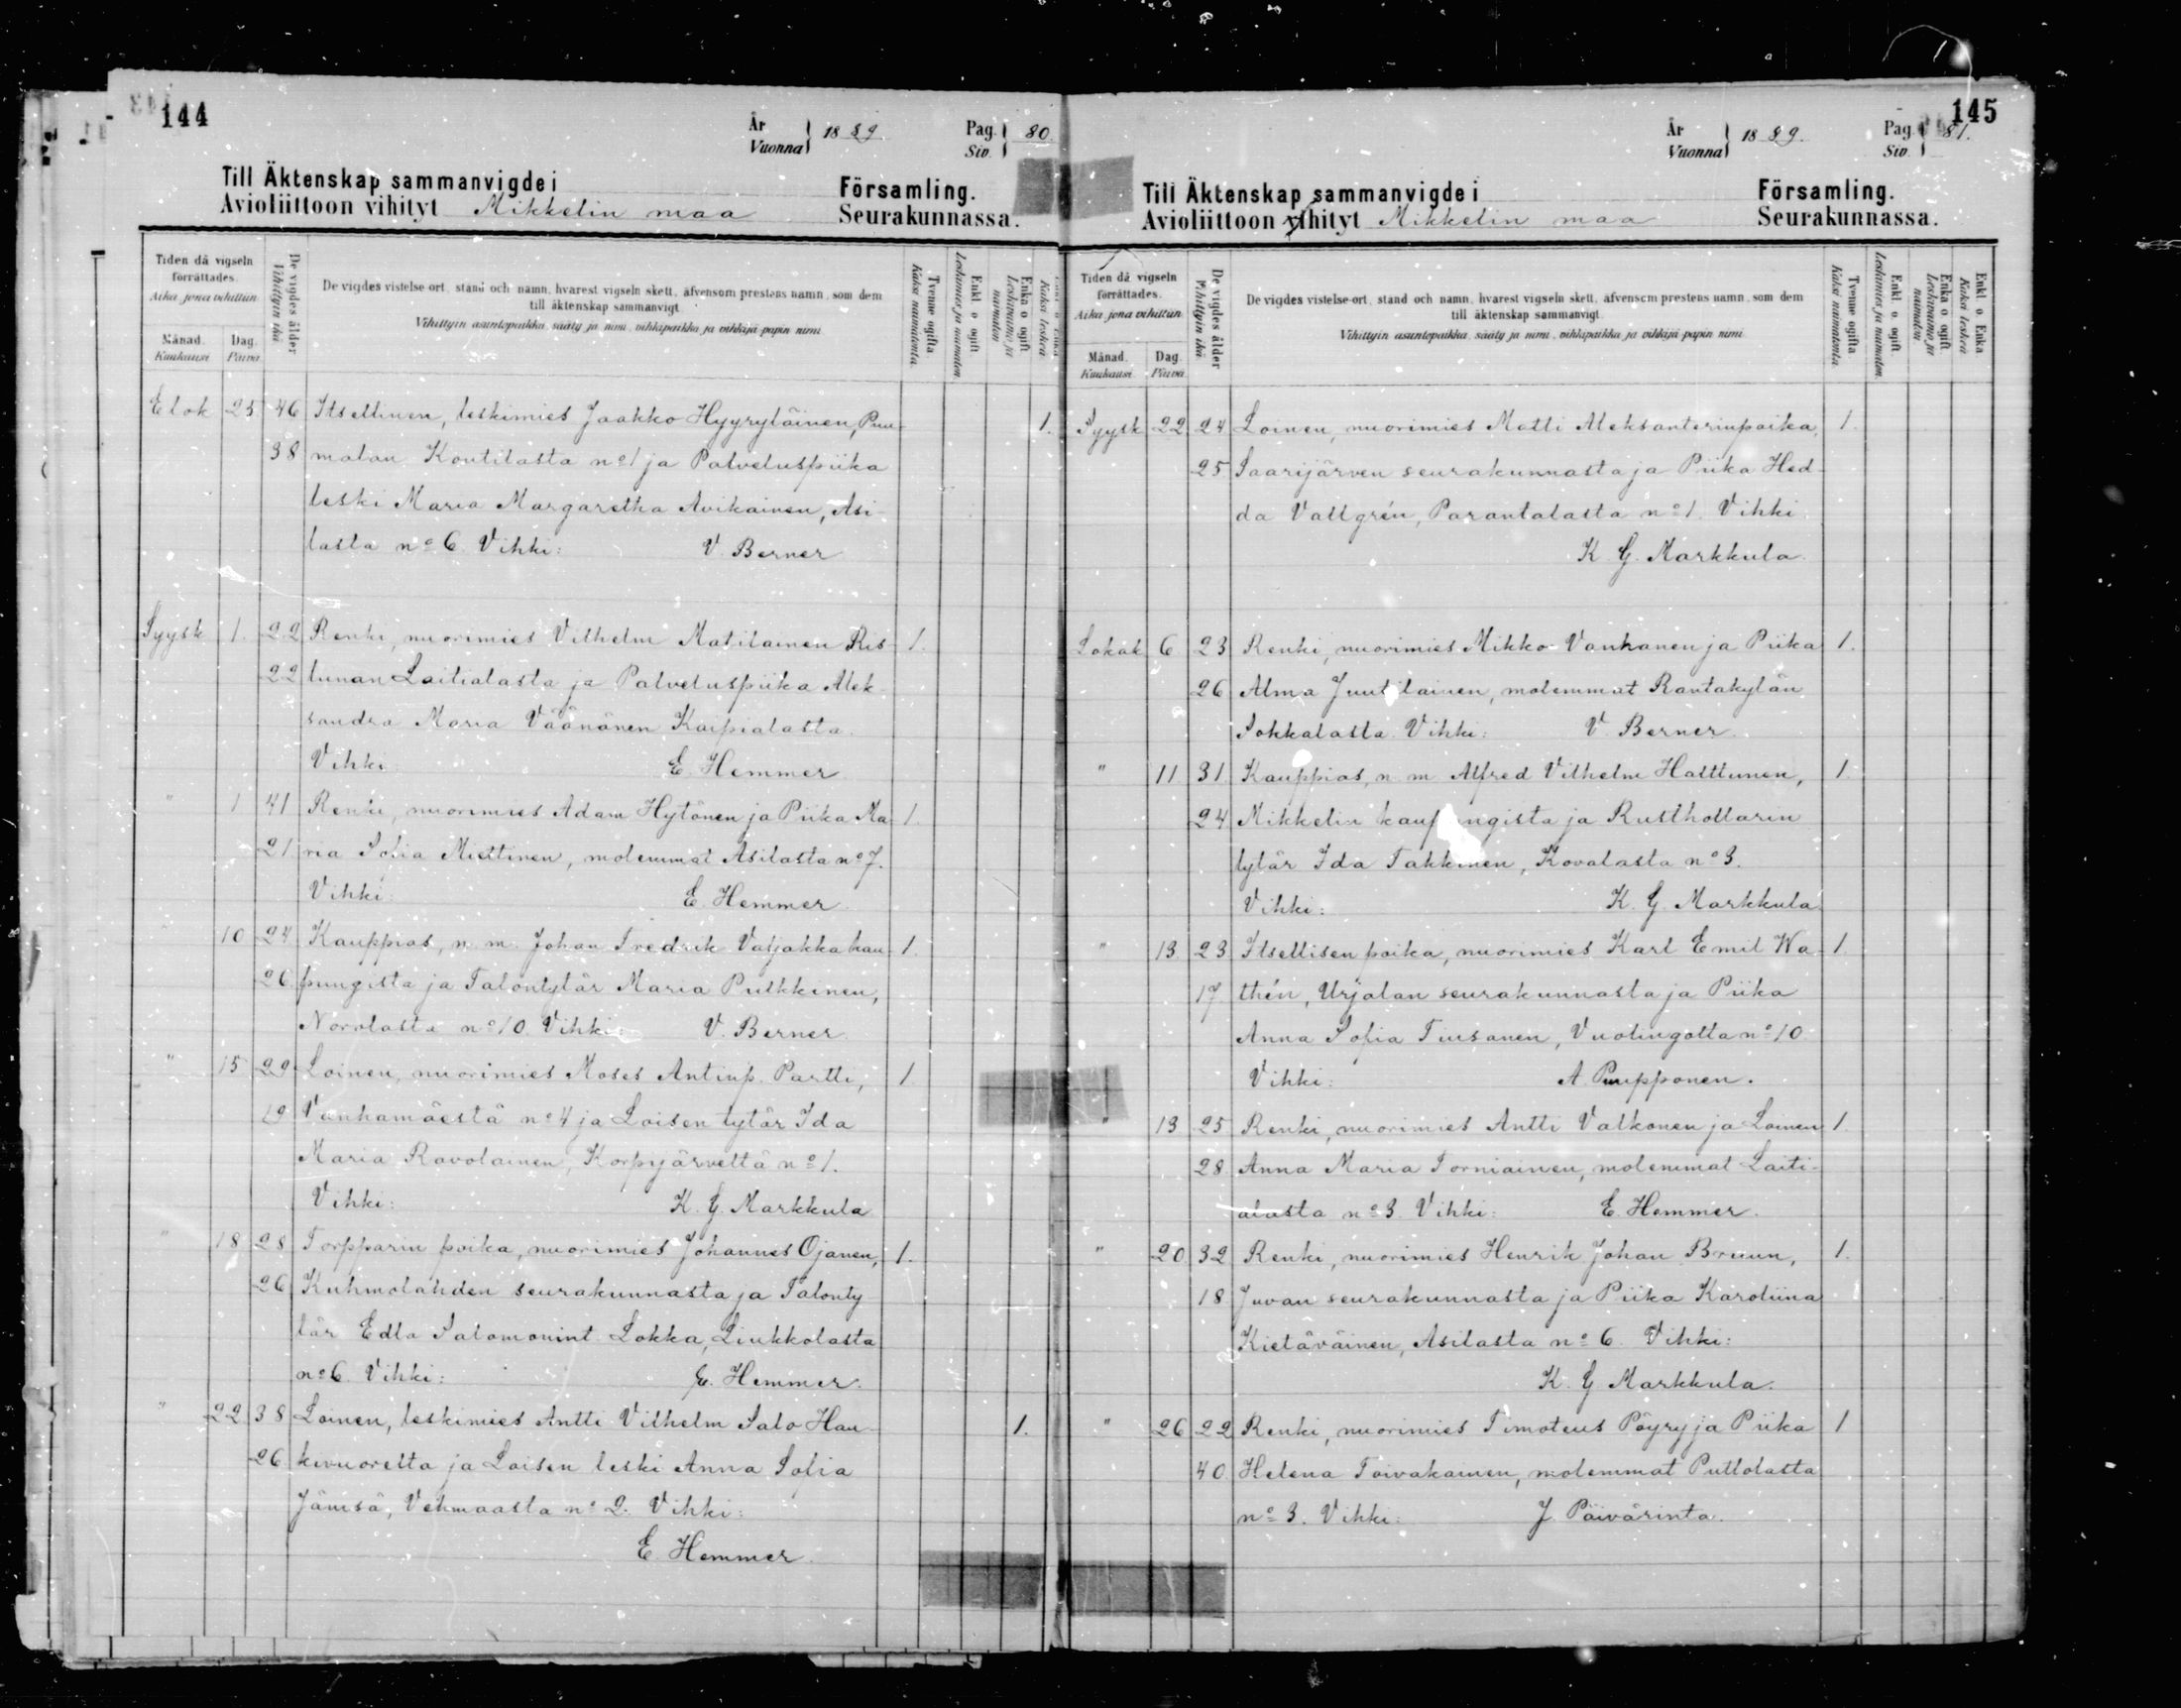 144
År
Vuonna
1889.
Pag.
Siv.
80.
Till Äktenskap sammanvigde i
Församling.
Avioliittoon vihityt Mikkelin maa Seurakunnassa.
Tiden då vigseln
förrättades.
Aika, jona vihittiin
Månad.
Kuukausi
Dag.
Päivä.
De vigdes ålder
Vihittyin ikä
De vigdes vistelse-ort, stånd och namn, hvarest vigseln skett, äfvensom prestens namn, som dem
till äktenskap sammanvigt.
Vihittyin asuntopaikka, sääty ja nimi, vihkipaikka ja vihkijä-papin nimi.
Tvenne ogifta
Kaksi naimatonta.
Enkl. o. ogift.
Leskimies ja naimaton.
Enka o. ogift
Leskivaimo ja
naimaton
Enkl. o. Enka
Kaksi leskeä
Elok 25 46 Itsellinen, leskimies Jaakko Hyyryläinen, Puu- 1.
38 malan Koutilasta nº 1 ja Palveluspiika
leski Maria Margaretha Avikainen, Asi-
lasta nº 6. Vihki: V. Berner
Syysk 1. 22 Renki, nuorimies Vilhelm Matilainen Ris- 1.
22 tiinan Laitialasta ja Palveluspiika Alek-
sandra Maria Väänänen Karpialasta.
Vihki E. Hemmer
" 1 41 Renki, nuorimies Adam Hytönen ja Piika Ma- 1.
21 ria Sofia Miettinen, molemmat Asilasta nº 7.
Vihki: E. Hemmer
10 24 Kauppias, n. m. Johan Fredrik Valjakka kau- 1.
26 pungista ja Talontytär Maria Pulkkinen,
Norolasta nº 10. Vihki: V. Berner
" 15 29 Loinen, nuorimies Moses Antinp. Partti, 1
19 Vanhamäestä nº 4 ja Loisen tytär Ida
Maria Ravolainen, Korpijärveltä nº 1.
Vihki: K. G. Markkula
" 18 28 Torpparin poika, nuorimies Johannes Ojanen, 1.
26 Kuhmolahden seurakunnasta ja Talonty
tär Edla Salomonint. Lokka, Liukkolasta
nº 6 Vihki: E. Hemmer.
" 22 38 Loinen, leskimies Antti Vilhelm Salo Hau- 1.
26 kivuorelta ja Loisen leski Anna Sofia
Jämsä, Vehmaasta nº 2. Vihki:
E. Hemmer
145
År
Vuonna
1889.
Pag.
Siv.
81.
Till Äktenskap sammanvigde i
Församling.
Avioliittoon vihityt Mikkelin maa Seurakunnassa.
Tiden då vigseln
förrättades.
Aika, jona vihittiin
Månad.
Kuukausi
Dag.
Päivä.
De vigdes ålder
Vihittyin ikä
De vigdes vistelse-ort, stånd och namn, hvarest vigseln skett, äfvensom prestens namn, som dem
till äktenskap sammanvigt.
Vihittyin asuntopaikka, sääty ja nimi, vihkipaikka ja vihkijä-papin nimi.
Tvenne ogifta
Kaksi naimatonta
Enkl. o. ogift.
Leskimies ja naimaton.
Enka o. ogift.
Leskivaimo ja
naimaton
Enkl. o. Enka
Kaksi leskeä
Syysk 22 24 Loinen, nuorimies Matti Aleksanterinpoika, 1.
25 Saarijärven seurakunnasta ja Piika Hed-
da Vallgrén, Parantalasta nº 1. Vihki
K. G. Markkula.
Lokak 6 23 Renki, nuorimies Mikko Vanhanen ja Piika 1.
26 Alma Juutilainen, molemmat Rantakylän
Sokkalasta. Vihki: V. Berner.
" 11 31. Kauppias, n. m. Alfred Vilhelm Halttunen, 1.
24 Mikkelin kaupungista ja Rusthollarin
tytär Ida Takkinen, Kovalasta nº 3.
Vihki: K. G. Markkula
" 13. 23 Itsellisen poika, nuorimies Karl Emil Wa- 1.
17. thén, Urjalan seurakunnasta ja Piika
Anna Sofia Tiusanen, Vuolingolta nº 10
Vihki: A. Puupponen.
" 13 25 Renki, nuorimies Antti Valkonen ja Loinen 1.
28 Anna Maria Torniainen, molemmat Laiti-
alasta nº 3. Vihki: E. Hemmer.
" 20 32 Renki, nuorimies Henrik Johan Bruun, 1.
18 Juvan seurakunnasta ja Piika Karoliina
Kietäväinen, Asilasta nº 6. Vihki:
K. G Markkula.
" 26 22 Renki, nuorimies Timoteus Pöyry ja Piika 1
40 Helena Toivakainen, molemmat Puttolasta
nº 3. Vihki: J. Päivärinta.